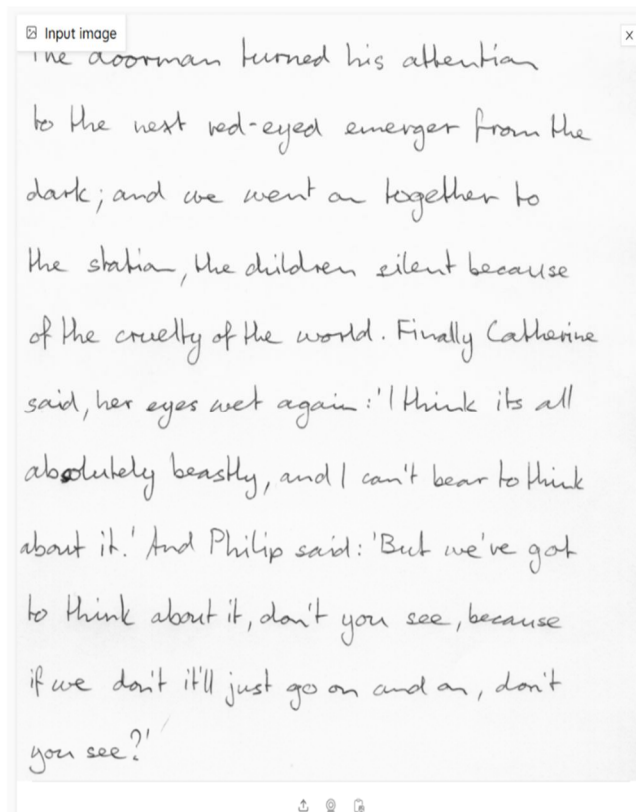 Input image
The doorman turned his attention
to the next red-eyed emerger from the
dark; and we went on together to
the station, the children silent because
of the cruelty of the world. Finally Catherine
said, her eyes wet again: 'I think its all
absolutely beastly, and I can't bear to think
about it.' And Philip said: 'But we've got
to think about it, don't you see, because
if we don't it'll just go on and on, don't
you see?'